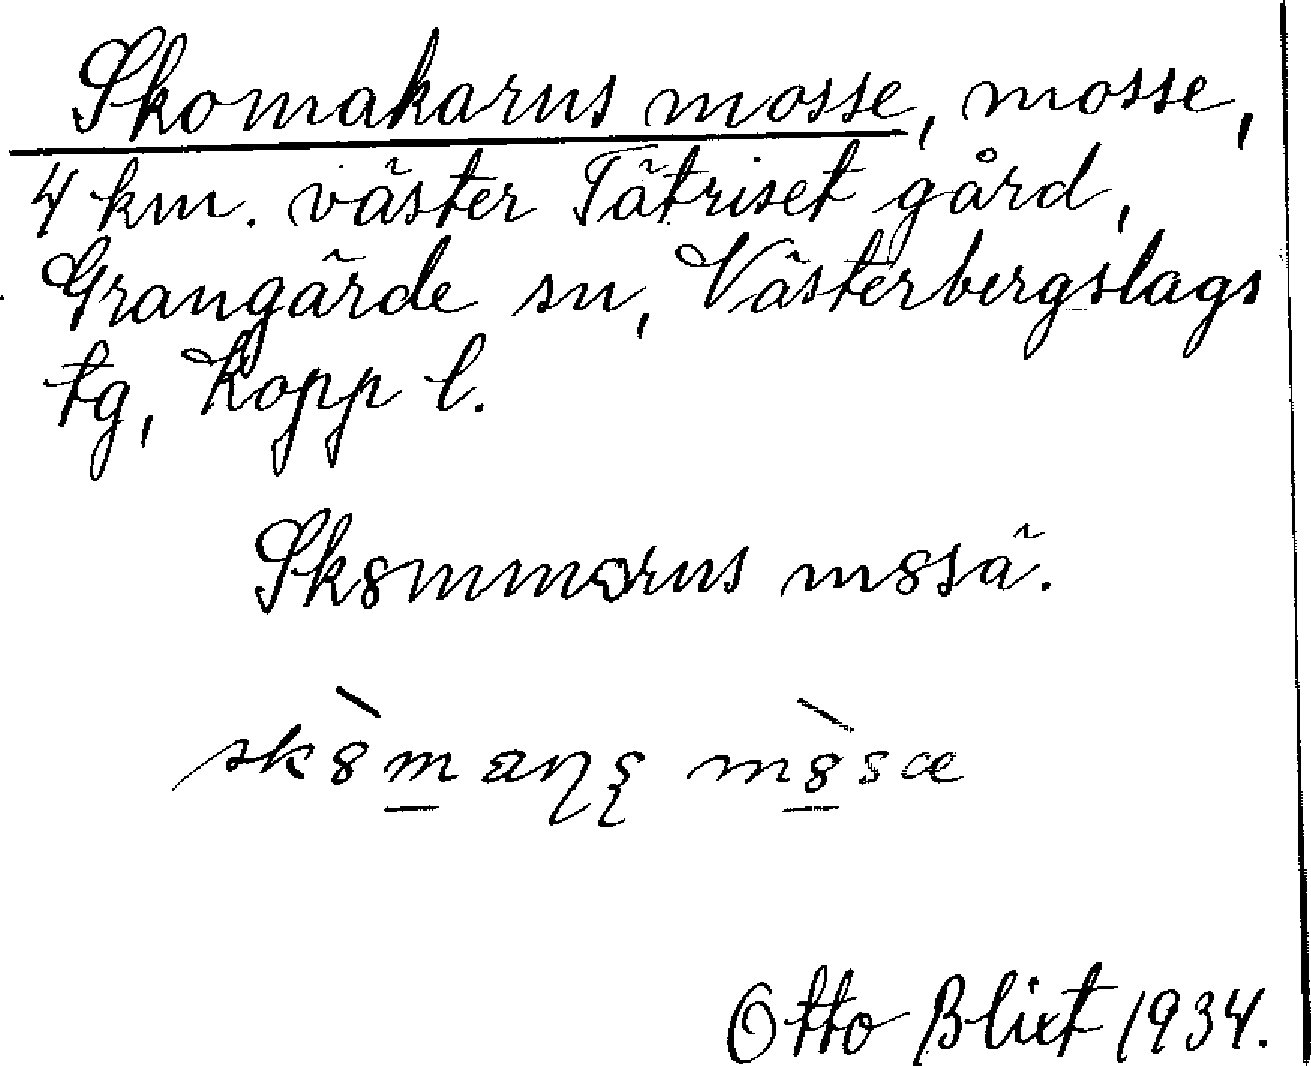 Skomakarns mosse, mosse,
4 km. väster Tätriset gård,
Grangärde sn, Västerbergslags
tg, Kopp l.
Sk8mmarns m8sä.
sk8̀m̲aɳʂ m8̲̀sæ
Otto Blixt 1934.